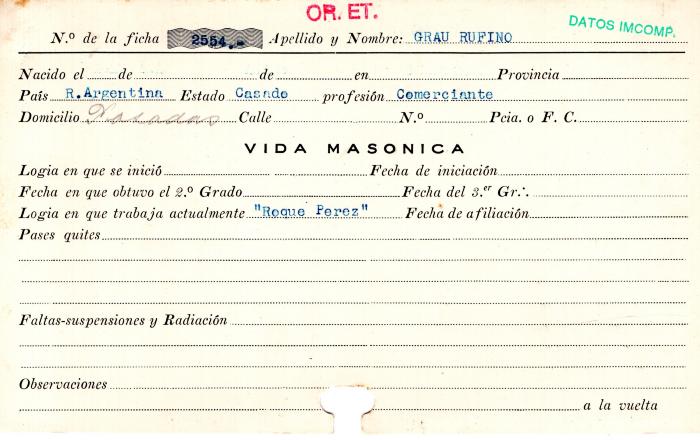 OR. ET.
DATOS IMCOMP.
N.º de la ficha 2554.- Apellido y Nombre: GRAU RUFINO
Nacido el de de en Provincia
País R.Argentina Estado Casado profesión Comerciante
Domicilio Posadas Calle N.º Pcia. o F. C.
VIDA MASONICA
Logia en que se inició Fecha de iniciación
Fecha en que obtuvo el 2.º Grado Fecha del 3.er Gr∴
Logia en que trabaja actualmente "Roque Perez" Fecha de afiliación
Pases quites
Faltas-suspensiones y Radiación
Observaciones
a la vuelta